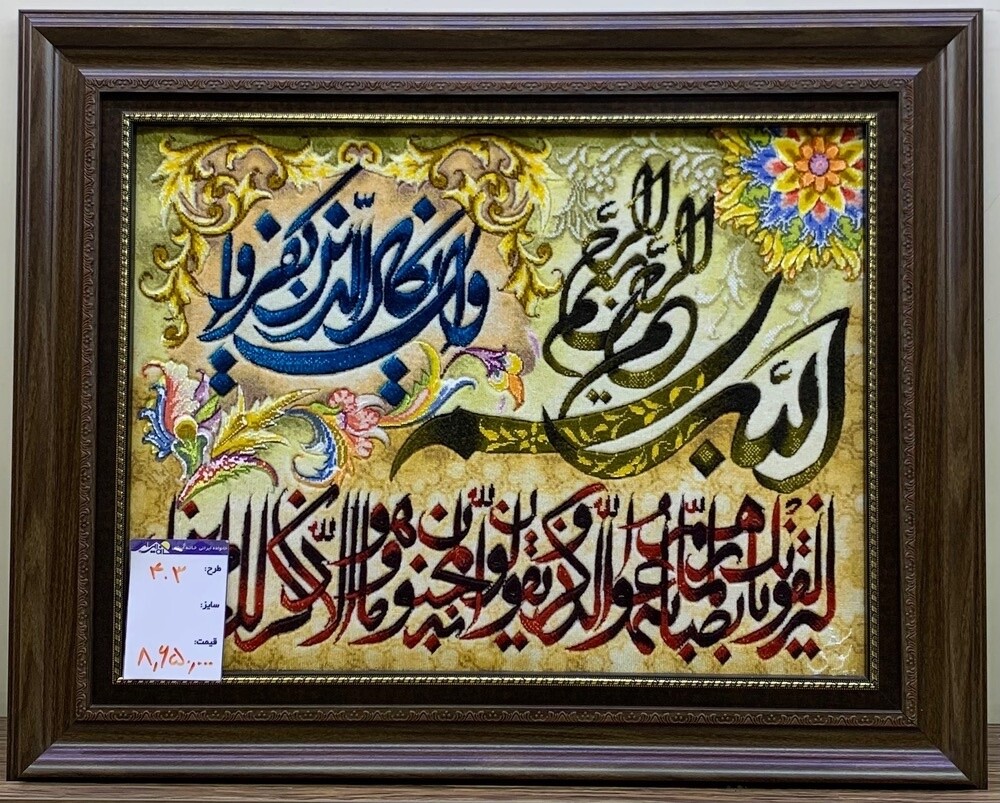 بسم الله الرحمن الرحیم
وان یکاد الذین کفروا
لیزلقونک بابصارهم لما سمعوا الذکر و یقولون انه لمجنون و ما هو الا ذکر للعالمین
خانواده ایرانی
طرح: ۴۰۳
سایز:
قیمت:
۸,۶۵۰,۰۰۰